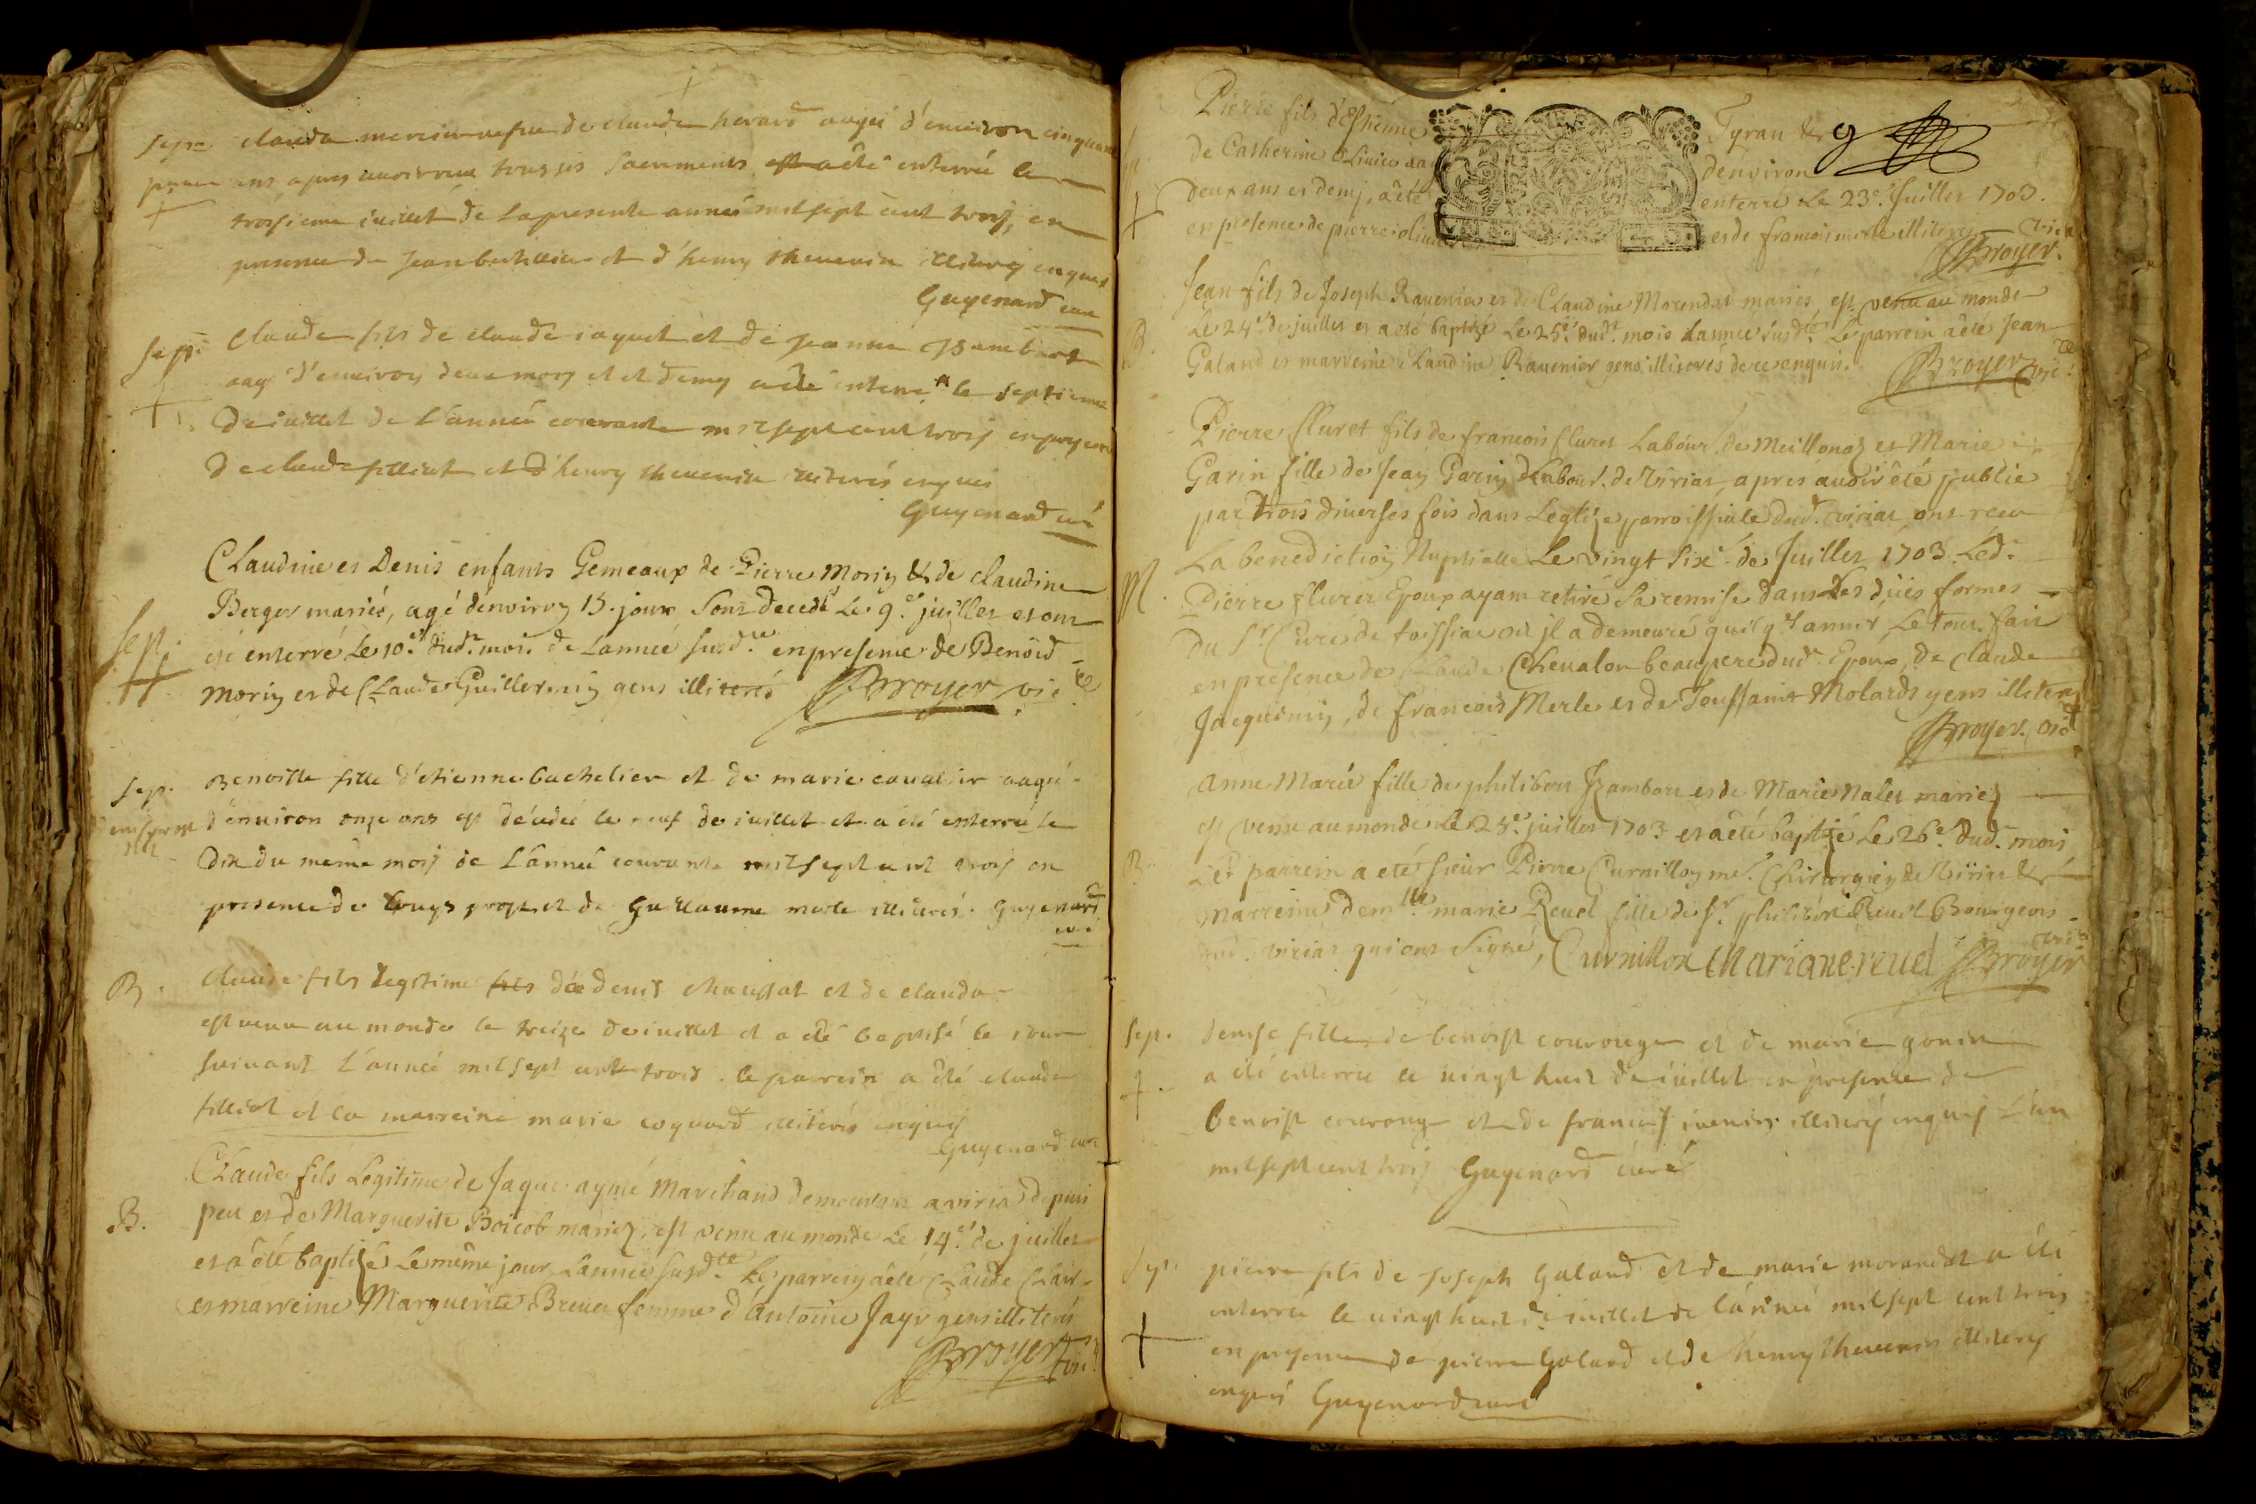 sep. Clauda mercier vefue de claude herard aagée d'environ cinquante
ans apres avoir receu tous ses sacrements est a été enterrée le
troisieme iuillet de la presente année mil sept cent trois, en
presence de Jean et d'henry thevenin illiterez enquis
Guyenard curé
sep. Claude fils de claude iaquet et de Jeanne
aagé d'environ deux moys et demy a été enterré le septieme
de iuillet de l'année courante mil sept cent trois en presence
de claude filliat et d'henry thevenin illiterés enquis
Guyenard curé
Claudine et Denis enfants Gemeaux de Pierre Moriy & de claudine
Berger mariés, agé d'environ 15. jours sont decedé Le 9.e juillet et ont
sep. été enterré Le 10.e dud.t mois de Lannée susd.te en presence de Benoid
Moriy et de Claude Guillermiy gens illiterés Broyer vic.re
sep. Benoitte fille d'etienne bachelier et de marie cavalier aagée
d'environ onze ans est décédée le neuf de iuillet et a été enterrée le
dix du même mois de l'année courante mil sept cent trois en
presence de Louys et de Guillaume merle illiterés. Guyenard
curé
B. Claude fils legitime fils de denis chaussat et de clauda
est venu au monde le treize de iuillet et a été baptisé le iour
suivant l'année mil sept cent trois. le parrein a été claude
filliat et la marreine marie coquard illiterés enquis
Guyenard curé
Claude fils Legitime de Jaque aymé Marchand demeurant a viria depuis
B. peu et de Marguerite Boicob mariez, est venu au monde Le 14.e de juillet
et a été baptizé Le même jour Lannée susd.te Le parreiy a été Claude Clair
et marreine Marguerite Brevet femme d'Antoine Jayr gens illiterés
Broyer vic.
Pierre fils d'Estienne Tyran &
de Catherine Olivier aagé d'environ
deux ans et demj, a été enterré Le 23.e Juillet 1703.
en presence de pierre olivier et de francois merle illiterez vic.re
Broyer.
Jean fils de Joseph Ravenier et de Claudine Morendat mariés est venu au monde
B. Le 24.e de juillet et a été baptizé Le 25.e dud.t mois Lannée susd.te Le parrein a été Jean
Galand et marreine Claudine Ravenier gens illiterés de ce enquis.
Broyer vic.re
Pierre fluret fils de francois fluret Labour.r de Meillonaz et Marie
Garin fille de Jeay Gariy Labour.r de Virias, apres avoir été publié
par trois diverses fois dans Leglize parroissiale dud.t virias ont receu
M. La benediction Nuptialle Le vingt six.e de Juillet 1703. Led.t
Pierre fluret Epoux ayant retiré sa remise dans Les düës formes
du S.r Curé de toissiac où jl a demeuré, Le tout fait
en presence de Claude Chevalon beaupere dud.t Epoux, de Claude
Jaquemiy, de francois Merle et de Toussaint Molards gens illiterez
Broyer. vic.
Anne Marie fille de philibert Rambore et de Marie Nalet mariez
est venu au monde Le 25.e juillet 1703 et a été baptizé Le 26.e dud.t mois
B. Le parrein a été sieur Pierre Curnilloy m.e Chirurgiey de Virias &
marreine dem.lle marie Revel fille de s.r philibert Revel Bourgeois
dud. virias qui ont signé, Curnillon Mariane revel Broyer vic.re
sep. Denise fille de benoist courouge et de marie gonin
a été enterrée le vingt huit de iuillet en presence de
benoist courouge et de francois iuenin illiterés enquis l'an
mil sept cent trois Guyenard curé
sep. pierre fils de Joseph Galand et de marie morandat a été
enterré le vingt huit de iuillet de l'année mil sept cent trois
en presence de pierre Galand et de henry thevenin illiterés
enquis Guyenard curé